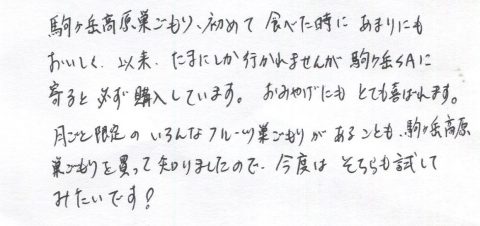 駒ヶ岳高原巣ごもり、初めて食べた時にあまりにも
おいしく、以来、たまにしか行かれませんが駒ヶ岳SAに
寄ると必ず購入しています。おみやげにもとても喜ばれます。
月ごと限定のいろんなフルーツ巣ごもりがあることも、駒ヶ岳高原
巣ごもりを買って知りましたので、今度はそちらも試して
みたいです!